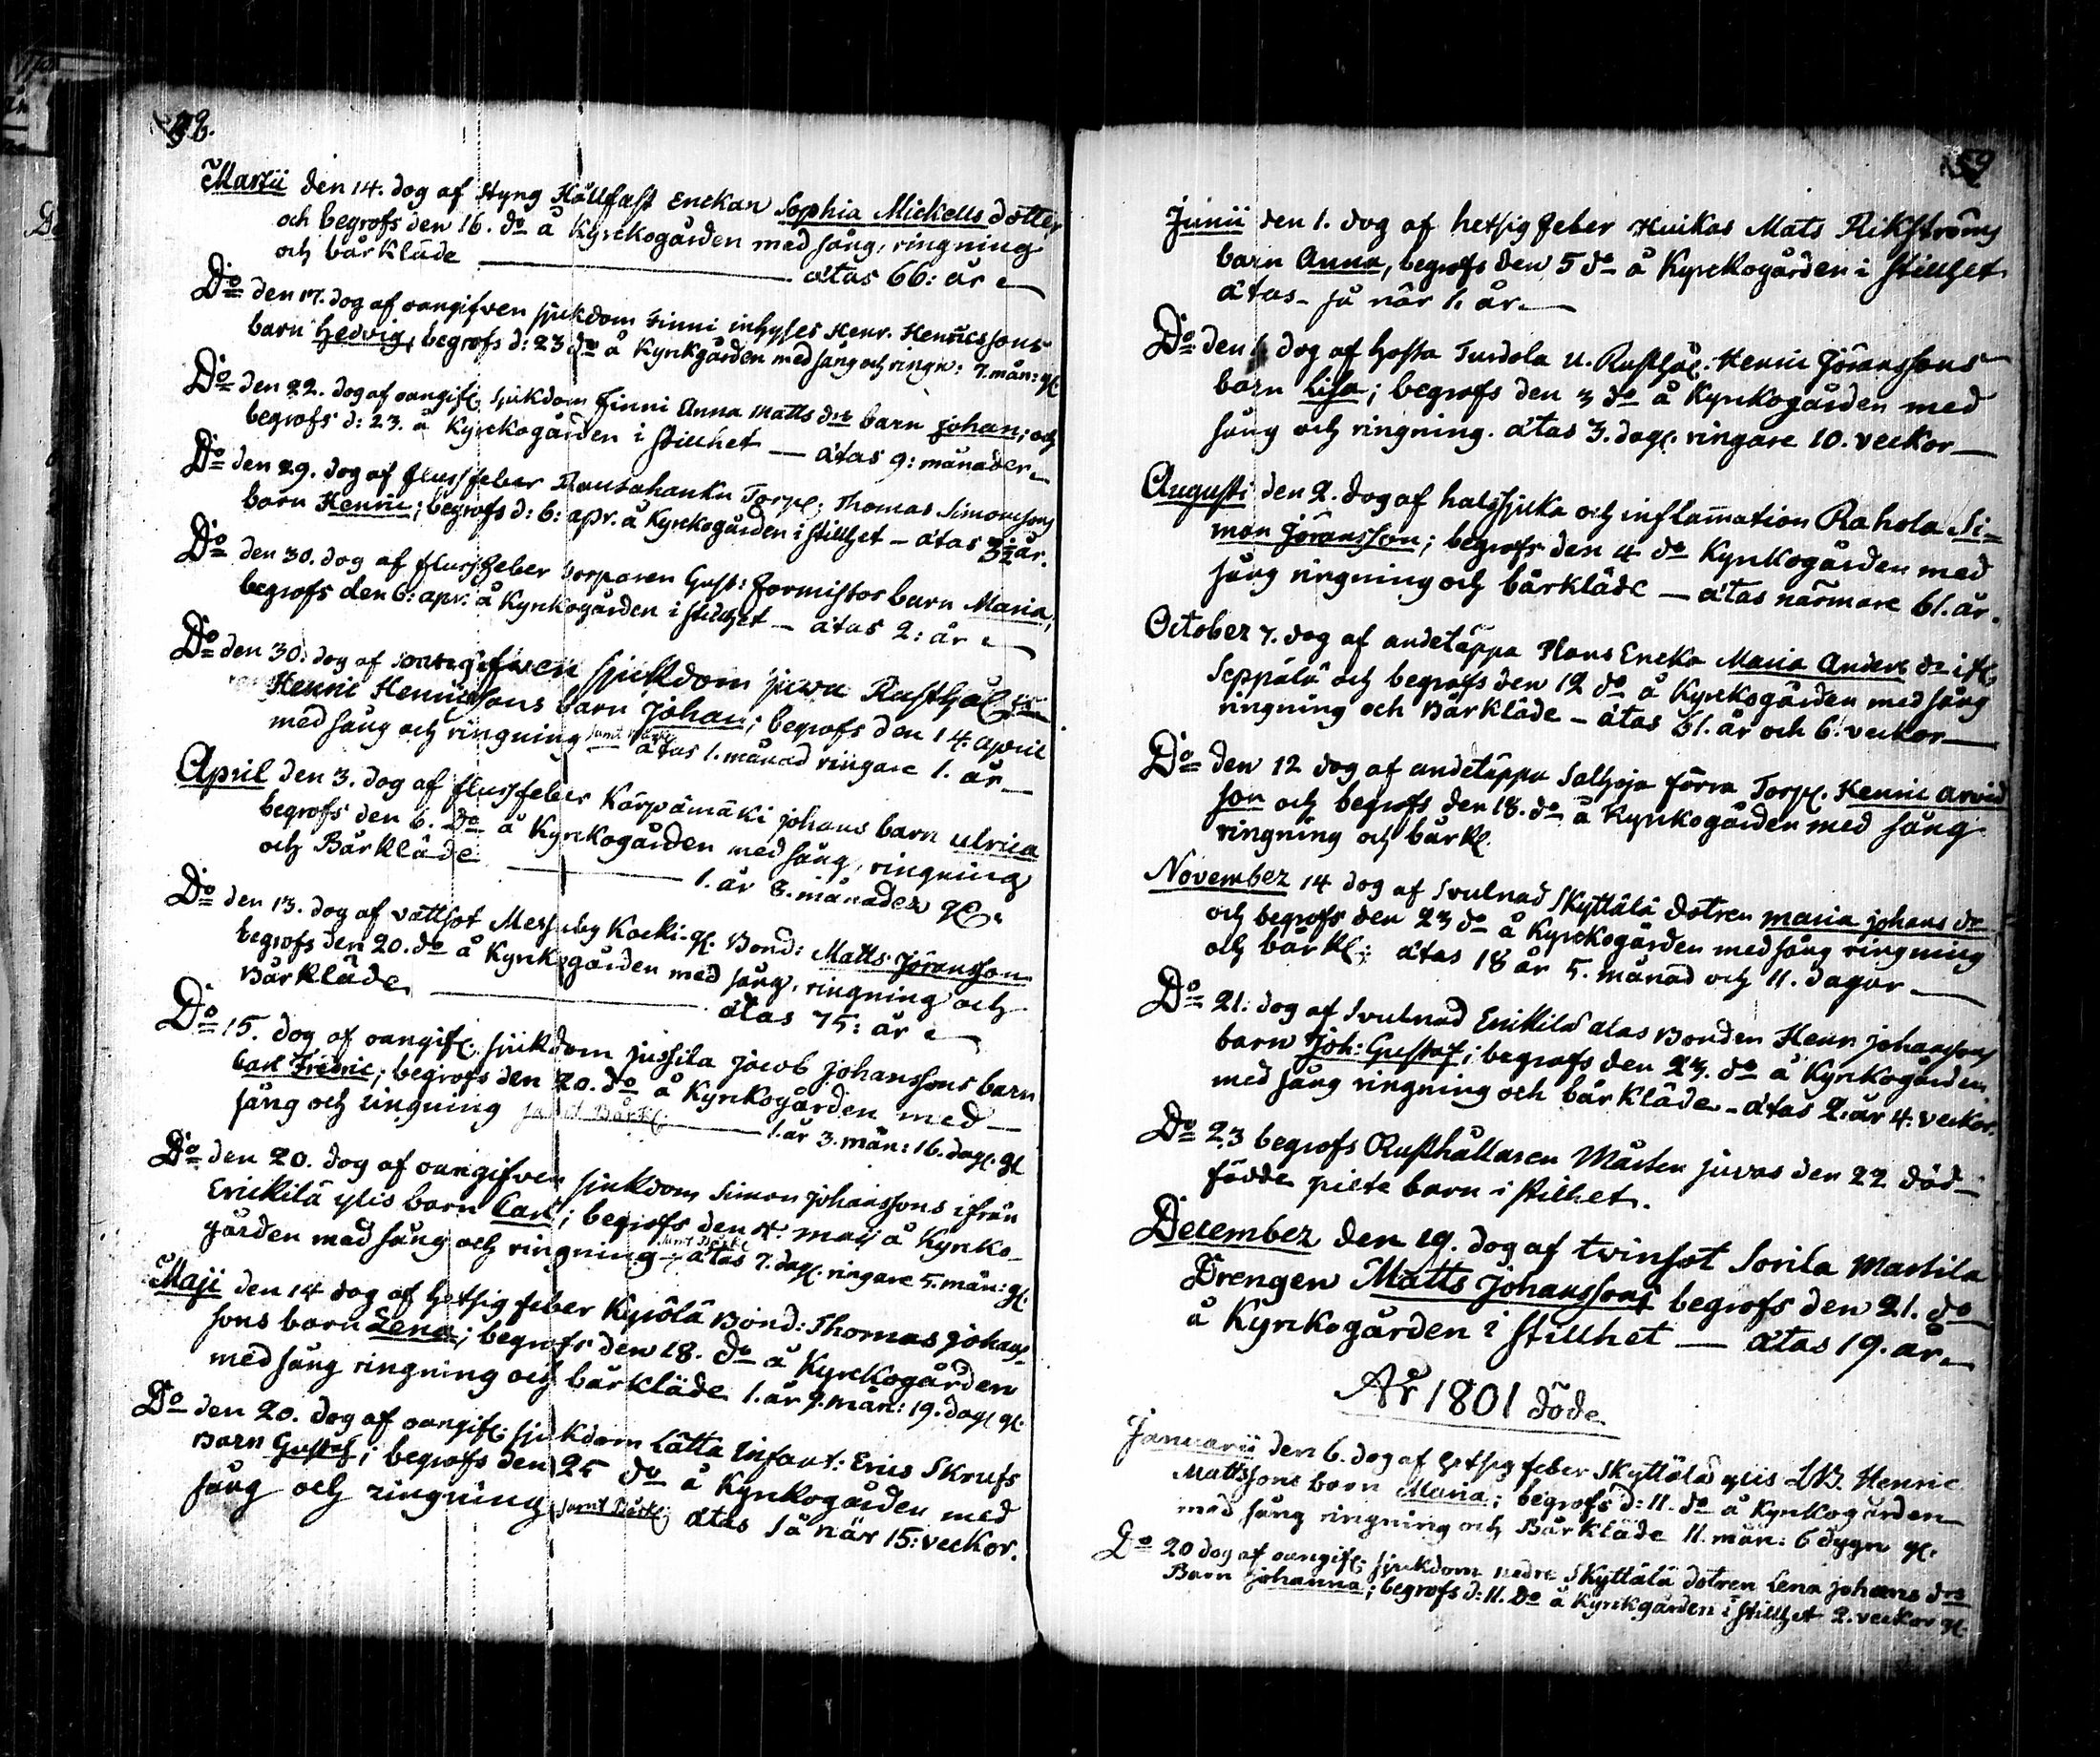 58.
Martii den 14. dog af Styng Hållfast Enckan Sophia Mickells dotter
och begrofs den 16. do å Kyrckogården med sång, ringning
och bårkläde — ätas 66: år
Do den 17. dog af oangifven sjukdom Finni inhyses Henr. Henricssons
barn Hedvig, begrofs d: 23 do å Kyrkgården med sång och ringn: 7. mån: gl.
Do den 22. dog af oangifl. sjukdom Finni Anna Matts dr barn johan; och
begrofs d: 23. å Kyrckogården i stillhet — ätas 9: månader
Do den 29. dog af flussfeber Torp: Thomas Simonsons
barn Henric; begrofs d: 6: apr. å Kyrckogården i stillhet — ätas 3½ år.
Do den 30. dog af flussfeber torparen Gust: Formistos barn Maria,
begrofs den 6: apr. å Kyrkogården i stillhet — ätas 2: år
Do den 30: dog af oangifven sjukdom juva Rusthål
Henric Henricssons barn Johan; begrofs den 14. april
med sång och ringning samt Bårkl. ätas 1. månad ringare 1. år
April den 3. dog af flussfeber Kärpämäki johans barn ulrica
begrofs den 6. do å Kyrckogården med sång, ringning
och Bårkläde — 1. år 8. månader gl.
Do den 13. dog af vattsot Messuby Kaeki-gl. Bond: Matts Jöransson
begrofs den 20. do å Kyrkogården med sång, ringning och
Bårkläde — ätas 75: år
Do 15. dog af oangifl. sjukdom jussila jacob johanssons barn
Carl Fredric; begrofs den 20. do å Kyrckogården med
sång och ringning samt Bårkl. — 1. år 3. mån: 16. dag. gl
Do den 20. dog af oangifven sjukdom Simon johanssons ifrån
Erickilä ylis barn Carl; begrofs den 4. maij å Kyrko-
gården med sång och ringning samt Bårkl. ätas 7. dag. ringare 5. mån: gl.
Maji den 14 dog af hetsig feber Kyrölä Bond: Thomas johans-
sons barn Lena; begrofs den 18. do å Kyrckogården
med sång ringning och bårkläde 1. år 9. mån: 19. dag. gl.
Do den 20. dog af oangifl. sjukdom Lätta Infant: Erics Skrufs
Barn Gustaf; begrofs den 25 do å Kyrckogården med
sång och ringning samt Bårkl: ätas så när 15: veckor.
59
Junii den 1. dog af hetsig feber Huikas Mats Rikströms
barn Anna, begrofs den 5 do å Kyrckogården i stillhet
ätas så när 1. år
Do den dog af hosta Turdola u. Rusthål. Henric Jöranssons
barn Lisa; begrofs den 3 do å Kyrkogården med
sång och ringning. ätas 3. dag. ringare 10. veckor
Augusti den 2. dog af halssjuka och inflamation Rahola Si=
mon Jöransson; begrofs den 4 do Kyrkogården med
sång ringning och bårkläde — ätas närmare 61. år.
October 7. dog af andetäppa Encka Maria Anders dr
Seppälä och begrofs den 12 do å Kyrckogården med sång
ringning och Bårkläde — ätas 31. år och 6. veckor
Do den 12 dog af andetäppa Salhoja förra Torp. Henric Arvid
son och begrofs den 18. do å Kyrckogården med sång
ringning och bårkl.
November 14 dog af Svulnad Skyttälä dotren Maria johans dr
och begrofs den 23 do å Kyrckogården med sång ringning
och bårkl: ätas 18 år 5. månad och 11. dagar
Do 21. dog af Svulnad Erickilä alas Bonden Henr johanssons
barn Joh: Gustaf; begrofs den 23. do å Kyrkogården
med sång ringning och bårkläde — ätas 2. år 4. veckor.
Do 23 begrofs Rusthållaren Mårten juvas den 22 död-
födde pilte barn i stillhet.
December den 19. dog af twinsot Sorila Martila
Drengen Matts Johanssons begrofs den 21. do
å Kyrckogården i stillhet — ätas 19. år
År 1801 döde
Januarii den 6. dog af hetsig feber Skyttälä ylis Henric
Mattssons barn Maria; begrofs d: 11. do å Kyrkogården
med sång ringning och Bårkläde 11. mån: 6 dygn gl.
Do 20 dog af oangifl. sjukdom nedre Skyttälä dotren Lena johans drs
Barn johanna; begrofs d: 11. Do å Kyrckgården i stillhet 2. veckor gl.